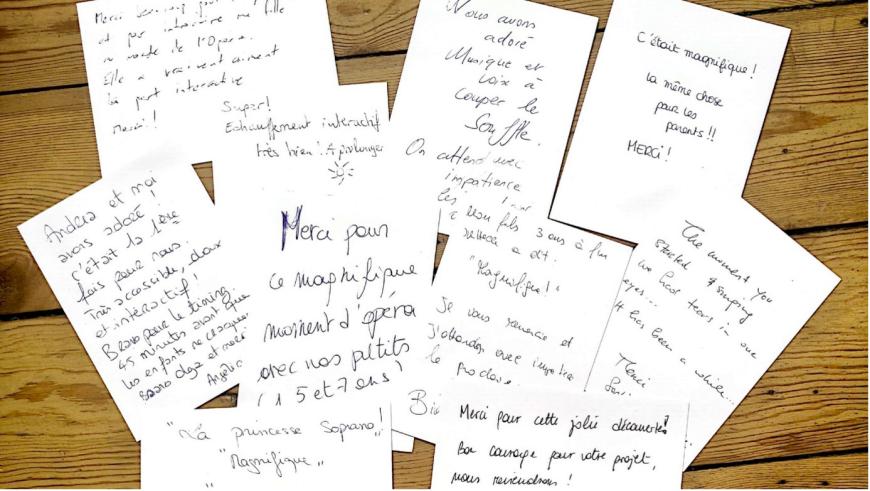 Merci beaucoup pour
et par
au monde de l'Opéra.
Elle a vraiment aimé
la part interactive
Merci!
Super!
Echauffement interactif
très bien ! A prolonger
Nous avons
adoré
Musique et
voix à
couper le
Souffle.
On attend avec
impatience
C'était magnifique!
la même chose
pour les
parents !!
MERCI !
Andrea et moi
avons adoré !
c'était la 1ère
fois pour nous.
Très accessible, doux
et interactif !
Bravo pour le timing.
45 minutes avant que
les enfants ne
Bravo et merci
Merci pour
ce magnifique
moment d'opéra
avec nos petits
( 5 et 7 ans )
fils 3 ans à
a dit.
"Magnifique!"
Je vous remercie et
J'attends avec
le
The moment you
started
we had tears in our
eyes...
It has been a while...
Merci
"La princesse Soprano!
"Magnifique"
Merci pour cette jolie découverte!
Bon courage pour votre projet,
nous reviendrons !